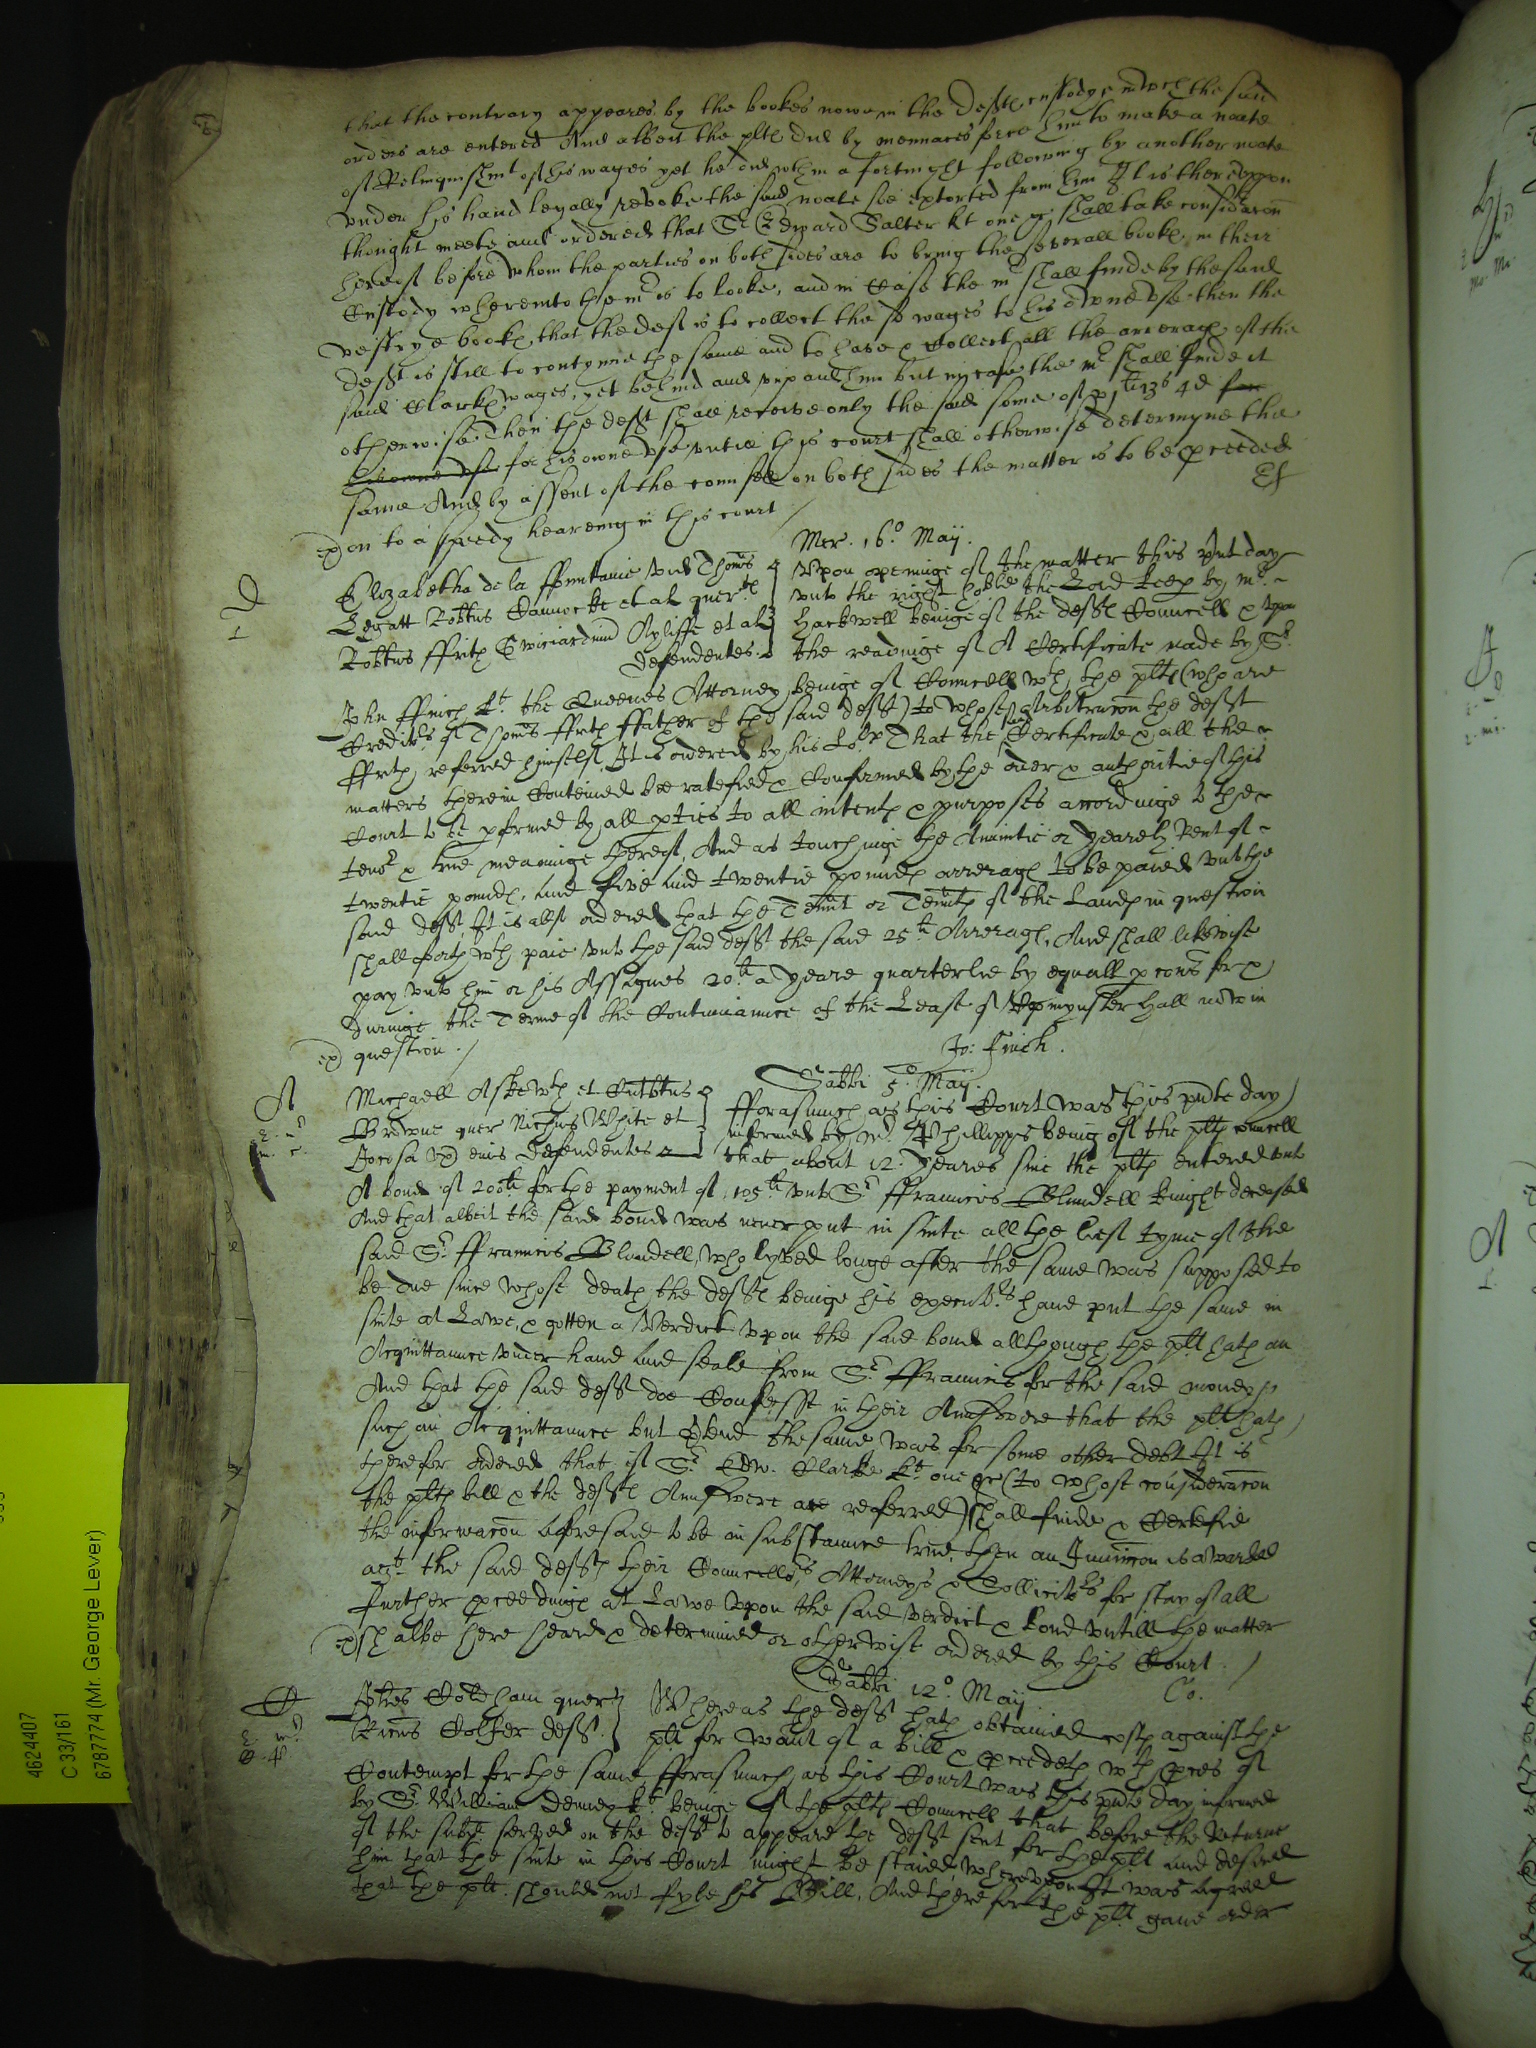 that the contrary appeares by the bookes nowe in the deftes custody, in wch the said
orders are entered And albeit the plte did by mennaces force him to make a noate
of Relinquishmt of his wages yet he did wthin a fortnight following by another noate
under his hand legally revoke the said noate soe extorted from him It is thereuppon
thought meete and ordered that Sr Edward Salter kt one &c shall take consideracon
hereof before whom the parties on both sides are to bring the severall bookes in their
Custody whereinto the mr is to looke, and in Case the mr shall finde by the said
vestrye bookes that the deft is to collect the sd wages to his owne use then the
deft is still to contynue the same and to have & Collect all the arrerages of the
said Clarkes wages, yet behind and unpaid him but in case the mr shall finde it
otherwise Then the deft shall receive only the said some of li 13s 4d for
his owne use for his owne use untill this court shall otherwise determyne the
same And by assent of the counsell on both sides the matter is to be proceeded
on to a speedy heareing in this court
Mer. 16o May.
Elizabetha de la ffountaine vid Thomas
Legatt Robtus Cannocke et al quertes
Robtus ffrith Gwiciardinu Ayliffe et al
defendentes.
Upon openinge of the matter this pnt day
unto the right hoble the Lord Keep by mr
Hackwell beinge of the deftes Councell & upon
the readinge of A Certificate made by Sr
John ffinch kt the Queenes Attorney, beinge of Councell wth the pltes (who are
Creditrs of Thomas ffrith ffather of the said deft) to whose Arbitracon the deft
ffrith referred himself, It is ordered by his Lopp That the said Certificate & all the
matters therein Conteined bee ratefied & Confirmed by the order & authoritie of this
Court to be pformed by all pties to all intentes & purposes accordinge to the
tenor & true meaninge thereof, And as touchinge the Anuitie or yearely Rent of
twentie poundes, and five and twentie poundes arrerages to be paied unto the
said deft It is also ordered that the Tennt or Tenntes of the Landes in question
shall forthwth paie unto the said deft the said 25li Arrerages, And shall likewise
pay unto him or his Assignes 20li a yeare quarterlie by equall porcons for &
duringe the Terme of the Continuance of the Lease of Upmynster Hall now in
question.
Jo: Finch.
Sabbi 5o May.
Michaell Askewth et Cuthbtus
Browne quer Nichus White et
Jocosa ux eius defendentes
fforasmuch as this Court was this pnte day
informed by mr Phillipps being of the pltes councell
that about 12. yeares since the pltes entered into
A bond of 200li for the payment of 105li unto Sr ffrauncis Blundell knight deceased
And that albeit the said bond was never put in suite all the lief tyme of the
said Sr ffrauncis Blundell, who lyved longe after the same was supposed to
be due since whose death the deftes beinge his executrs have put the same in
suite at Lawe, & gotten a Verdict upon the said bond allthough the plt hath an
Acquittaunce under hand and seale from Sr ffrauncis for the said money,
And that the said deft doe Confesse in their Answere that the plt hath
such an Acquittaunce but p̱tend the same was for some other debt It is
therefor ordered that if Sr Edw. Clarke kt one &c (to whose consideracon
the pltes bill & the deftes Answere are referred) shall finde & Certefie
the informacon aforesaid to be in substaunce true, then an Iniuncon is awarded
agt the said deftes their Councellrs, Attorneys & Sollicitrs for stay of all
further proceedinges at Lawe upon the said verdict & bond untill the matter
shalbe here heard & determined or otherwise ordered by this Court.
Sabbi 12o May.
Co.
Johes Coltham quer
Ricus Colher deft.
Whereas the deft hath obtained costes against the
plt for want of a bill & proceedeth wth proces of
Contempt for the same fforasmuch as this Court was this pnte day informed
by Sr William Denney kt beinge of the pltes Councell that before the Returne
of the subp̱ served on the deft to appeare the deft sent for the plt and desired
him that the suite in this Court might be staied, whereupon It was agreed
that the plt should not fyle his Bill, And therefor the plt gave order
4624407
C 33/161
6787774 (Mr. George Lever)